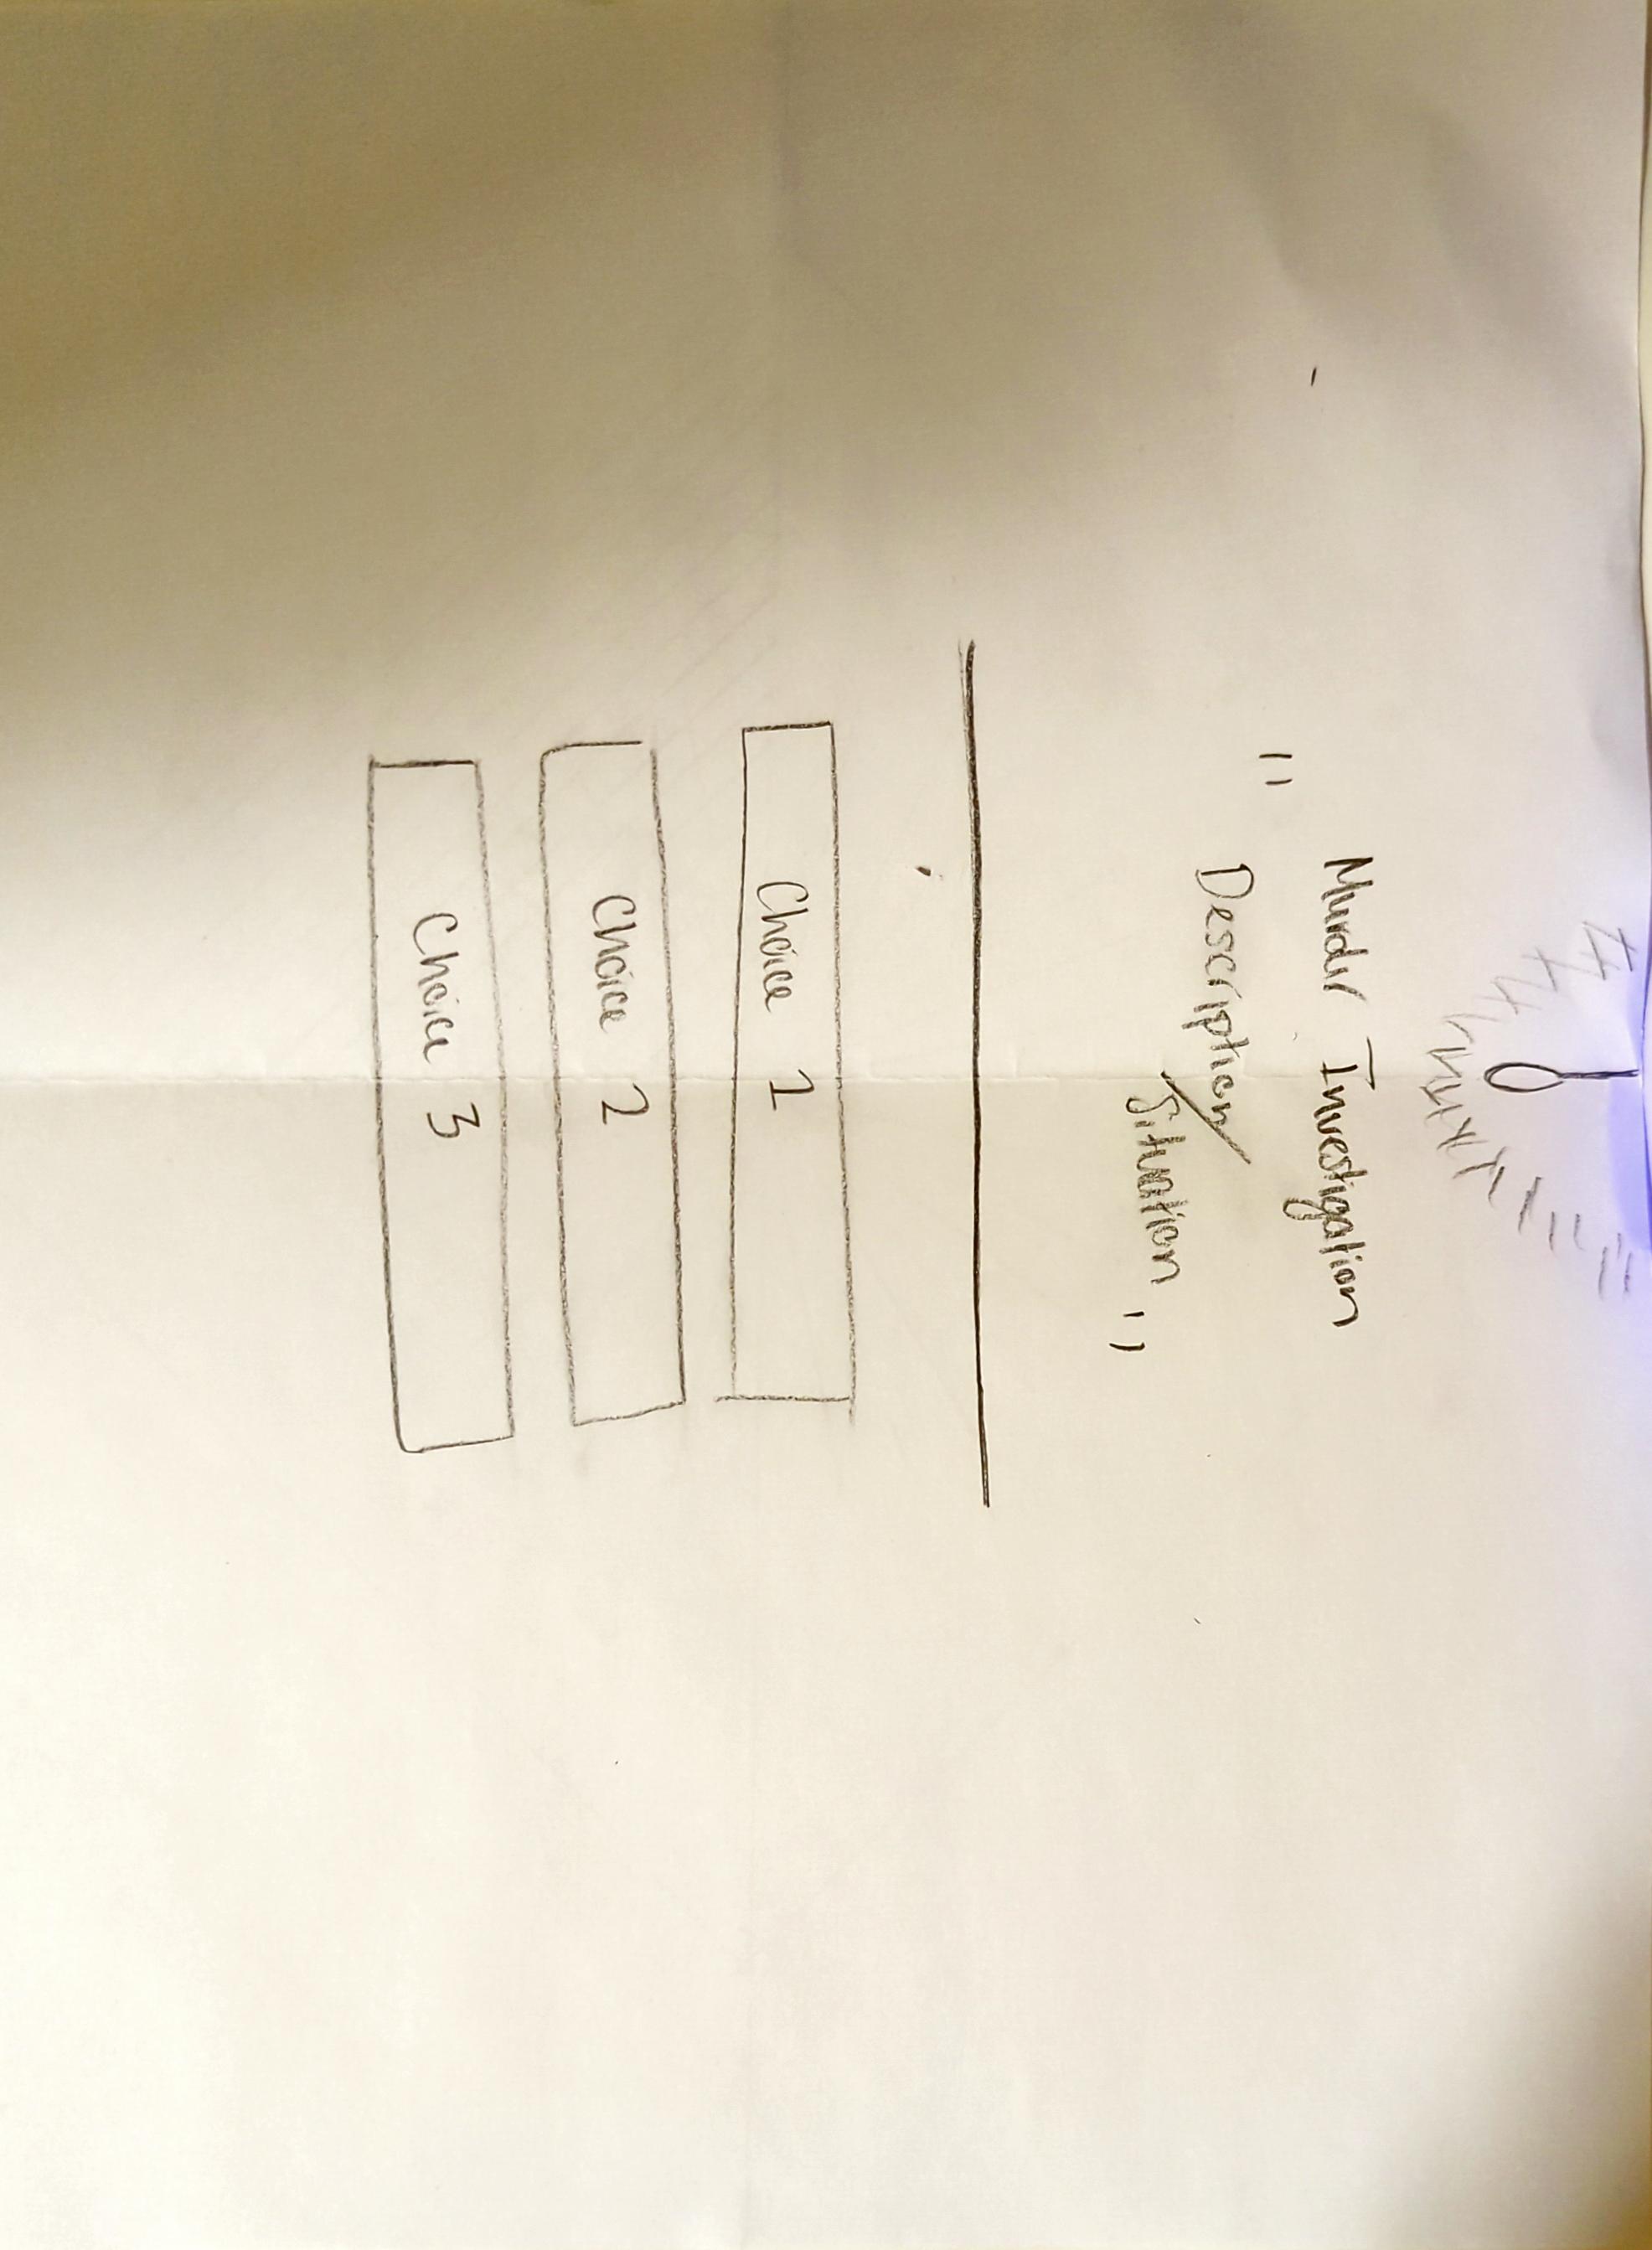 Murder Investigation
"
Description/
Situation "
Choice 1
Choice 2
Choice 3